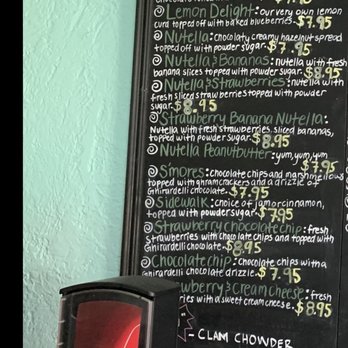 Lemon Delight: our very own lemon
curd topped off with baked blueberries. $7.95
Nutella: chocolaty creamy hazelnut spread
topped off with powder sugar. $7.95
Nutella & Bananas: nutella with fresh
banana slices topped with powder sugar. $8.95
Nutella & Strawberries: nutella with
fresh sliced strawberries topped with powder
sugar. $8.95
Strawberry Banana Nutella:
Nutella with fresh strawberries, sliced bananas,
topped off with powder sugar. $8.95
Nutella Peanutbutter: yum, yum, yum
$7.95
S'mores: chocolate chips and marshmellows
topped with grahm crackers and a drizzle of
Ghirardelli chocolate. $7.95
Sidewalk: choice of jam or cinnamon,
topped with powder sugar. $7.95
Strawberry chocolate chip: fresh
strawberries with chocolate chips and topped with
Ghirardelli chocolate. $8.95
Chocolate chip: chocolate chips with a
Ghirardelli chocolate drizzle. $7.95
& Cream Cheese: fresh
with a sweet cream cheese. $8.95
- CLAM CHOWDER